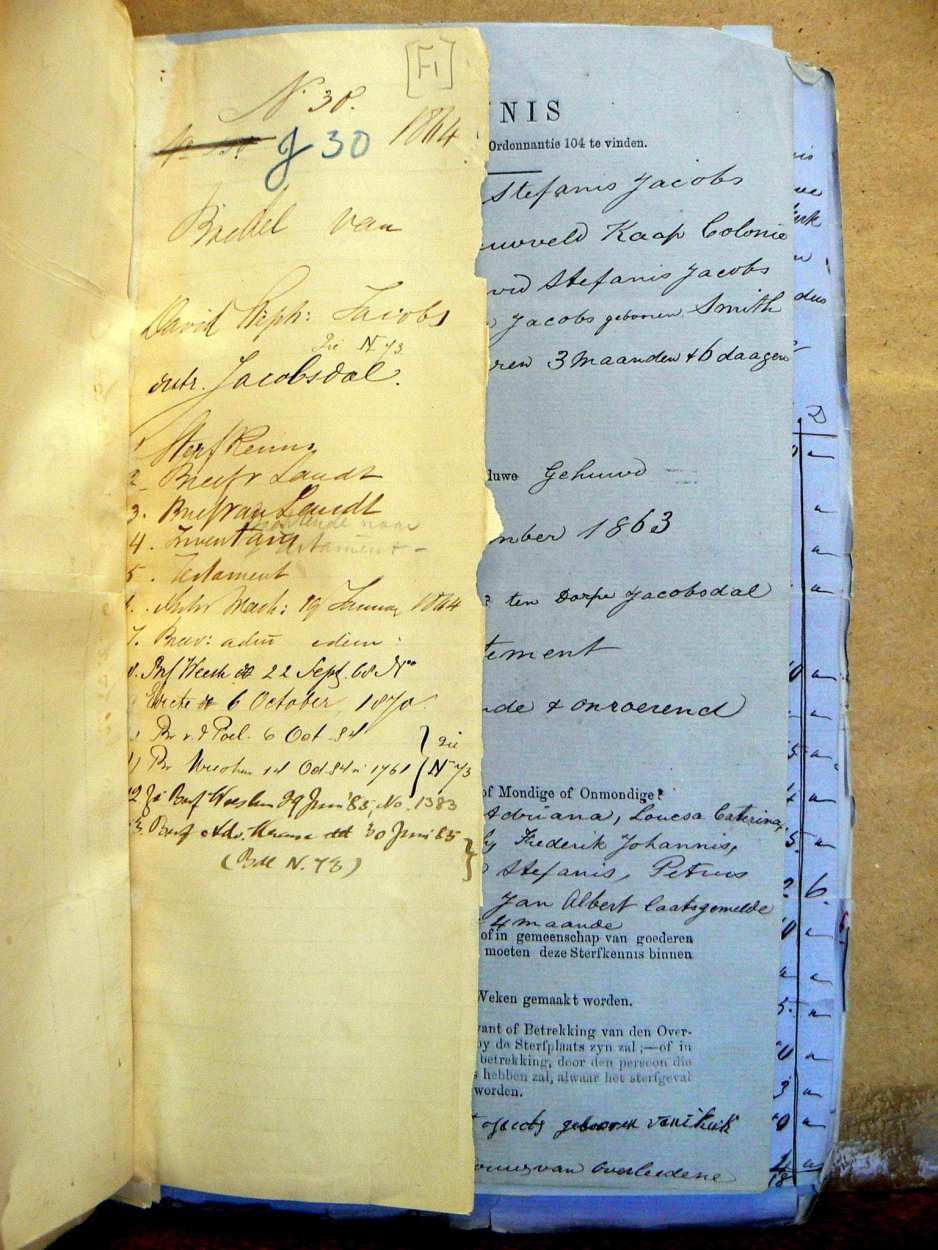 [F1]
N. 38.
J 30 1864
Boedel van
David Steph: Jacobs
Zie N 73
distr. Jacobsdal.
1 Sterfkennis
2 Brief v Landt
3. Brief van Landt
4. Inventaris
testament -
5. Testament
6. Wash: 19 January 1864
7. idem
8. Brf Weesh dd 22 Sept. 68 No
dd 6 October 1870.
Br v. d Poel. 6 Oct 84 } Zie
11 Br Weeshm 14 Oct 84 n 1761 N 73
12 Brf Weeshm 29 Juni '85, No. 1383
3. Brief Adv. 30 Juni 85
(Bdl N. 78)
NIS
Ordonnantie 104 te vinden.
Stefanis Jacobs
uwveld Kaap Colonie
vid Stefanis Jacobs
Jacobs geboren Smith
ren 3 maanden & 6 daagen
duwe Gehuwd
mber 1863
ten Dorpe Jacobsdal
tement
nde & onroerend
of Mondige of Onmondige?
Adriana, Louesa Caterina,
Frederik Johannis,
Stefanis, Petrus
Jan Albert laatsgemelde
4 maande
of in gemeenschap van goederen
moeten deze Sterfkennis binnen
Weken gemaakt worden.
want of Betrekking van den Over-
by de Sterfplaats zyn zal;—of in
betrekking, door den persoon die
hebben zal, alwaar het sterfgeval
worden.
geboren
van overledene